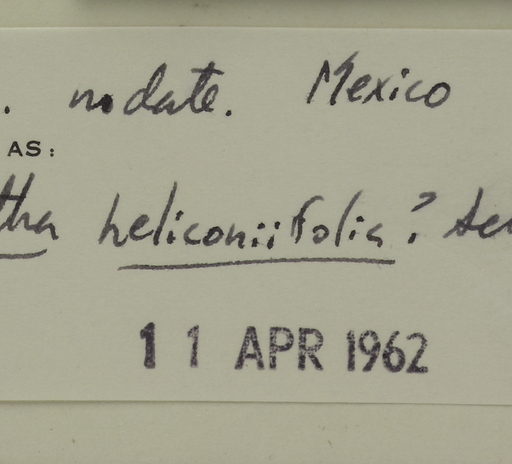 . no date. Mexico
AS:
tha heliconiifolia? ser
11 APR 1962